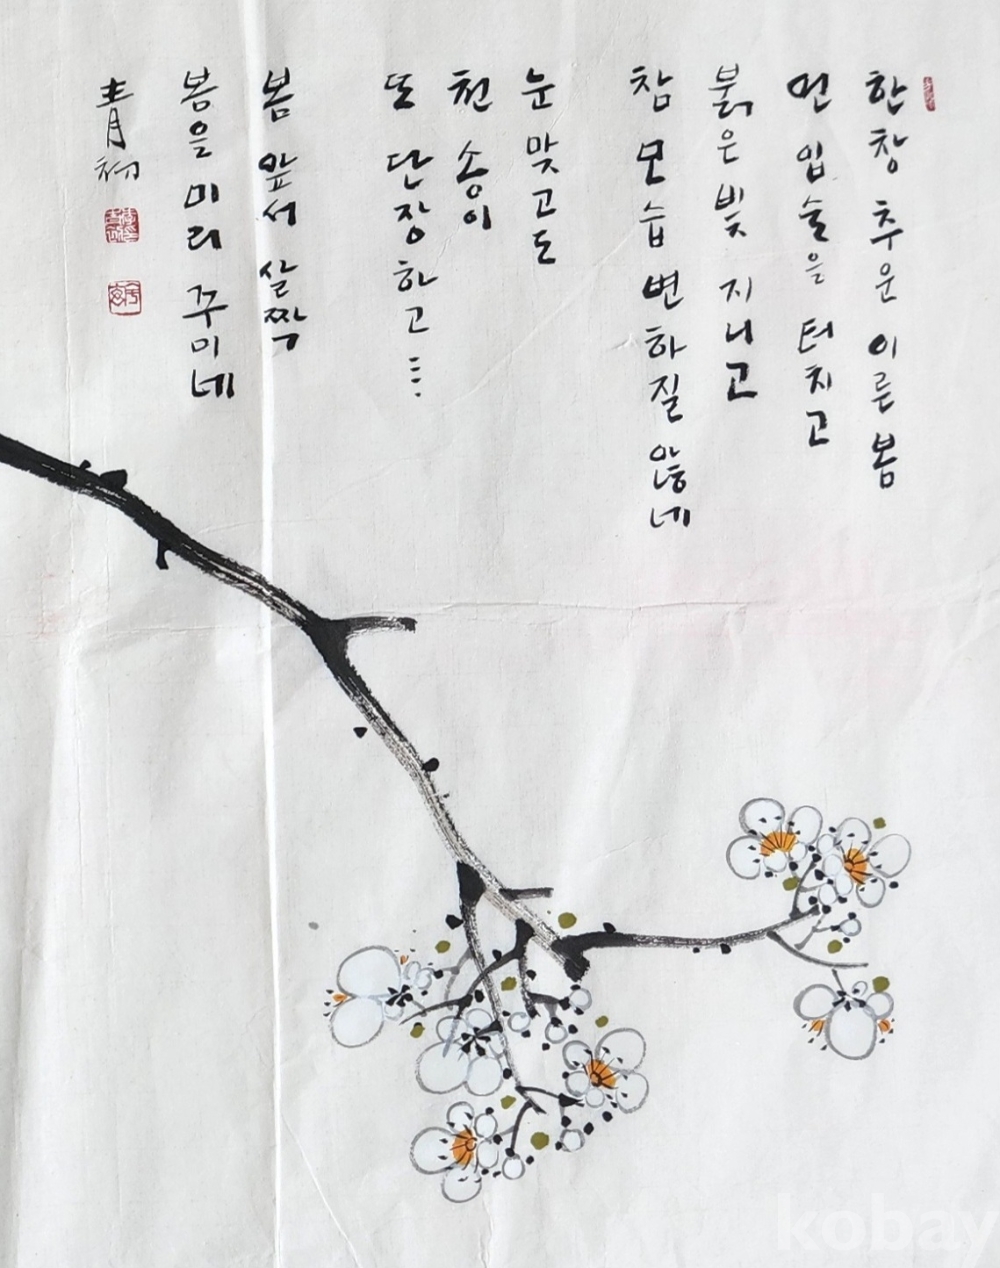 한창 추운 이른 봄
언 입술을 터치고
붉은 빛 지니고
참 모습 변하질 않네
눈 맞고도
천 송이
또 단장하고…
봄 앞서 살짝
봄을 미리 꾸미네
青初
kobay